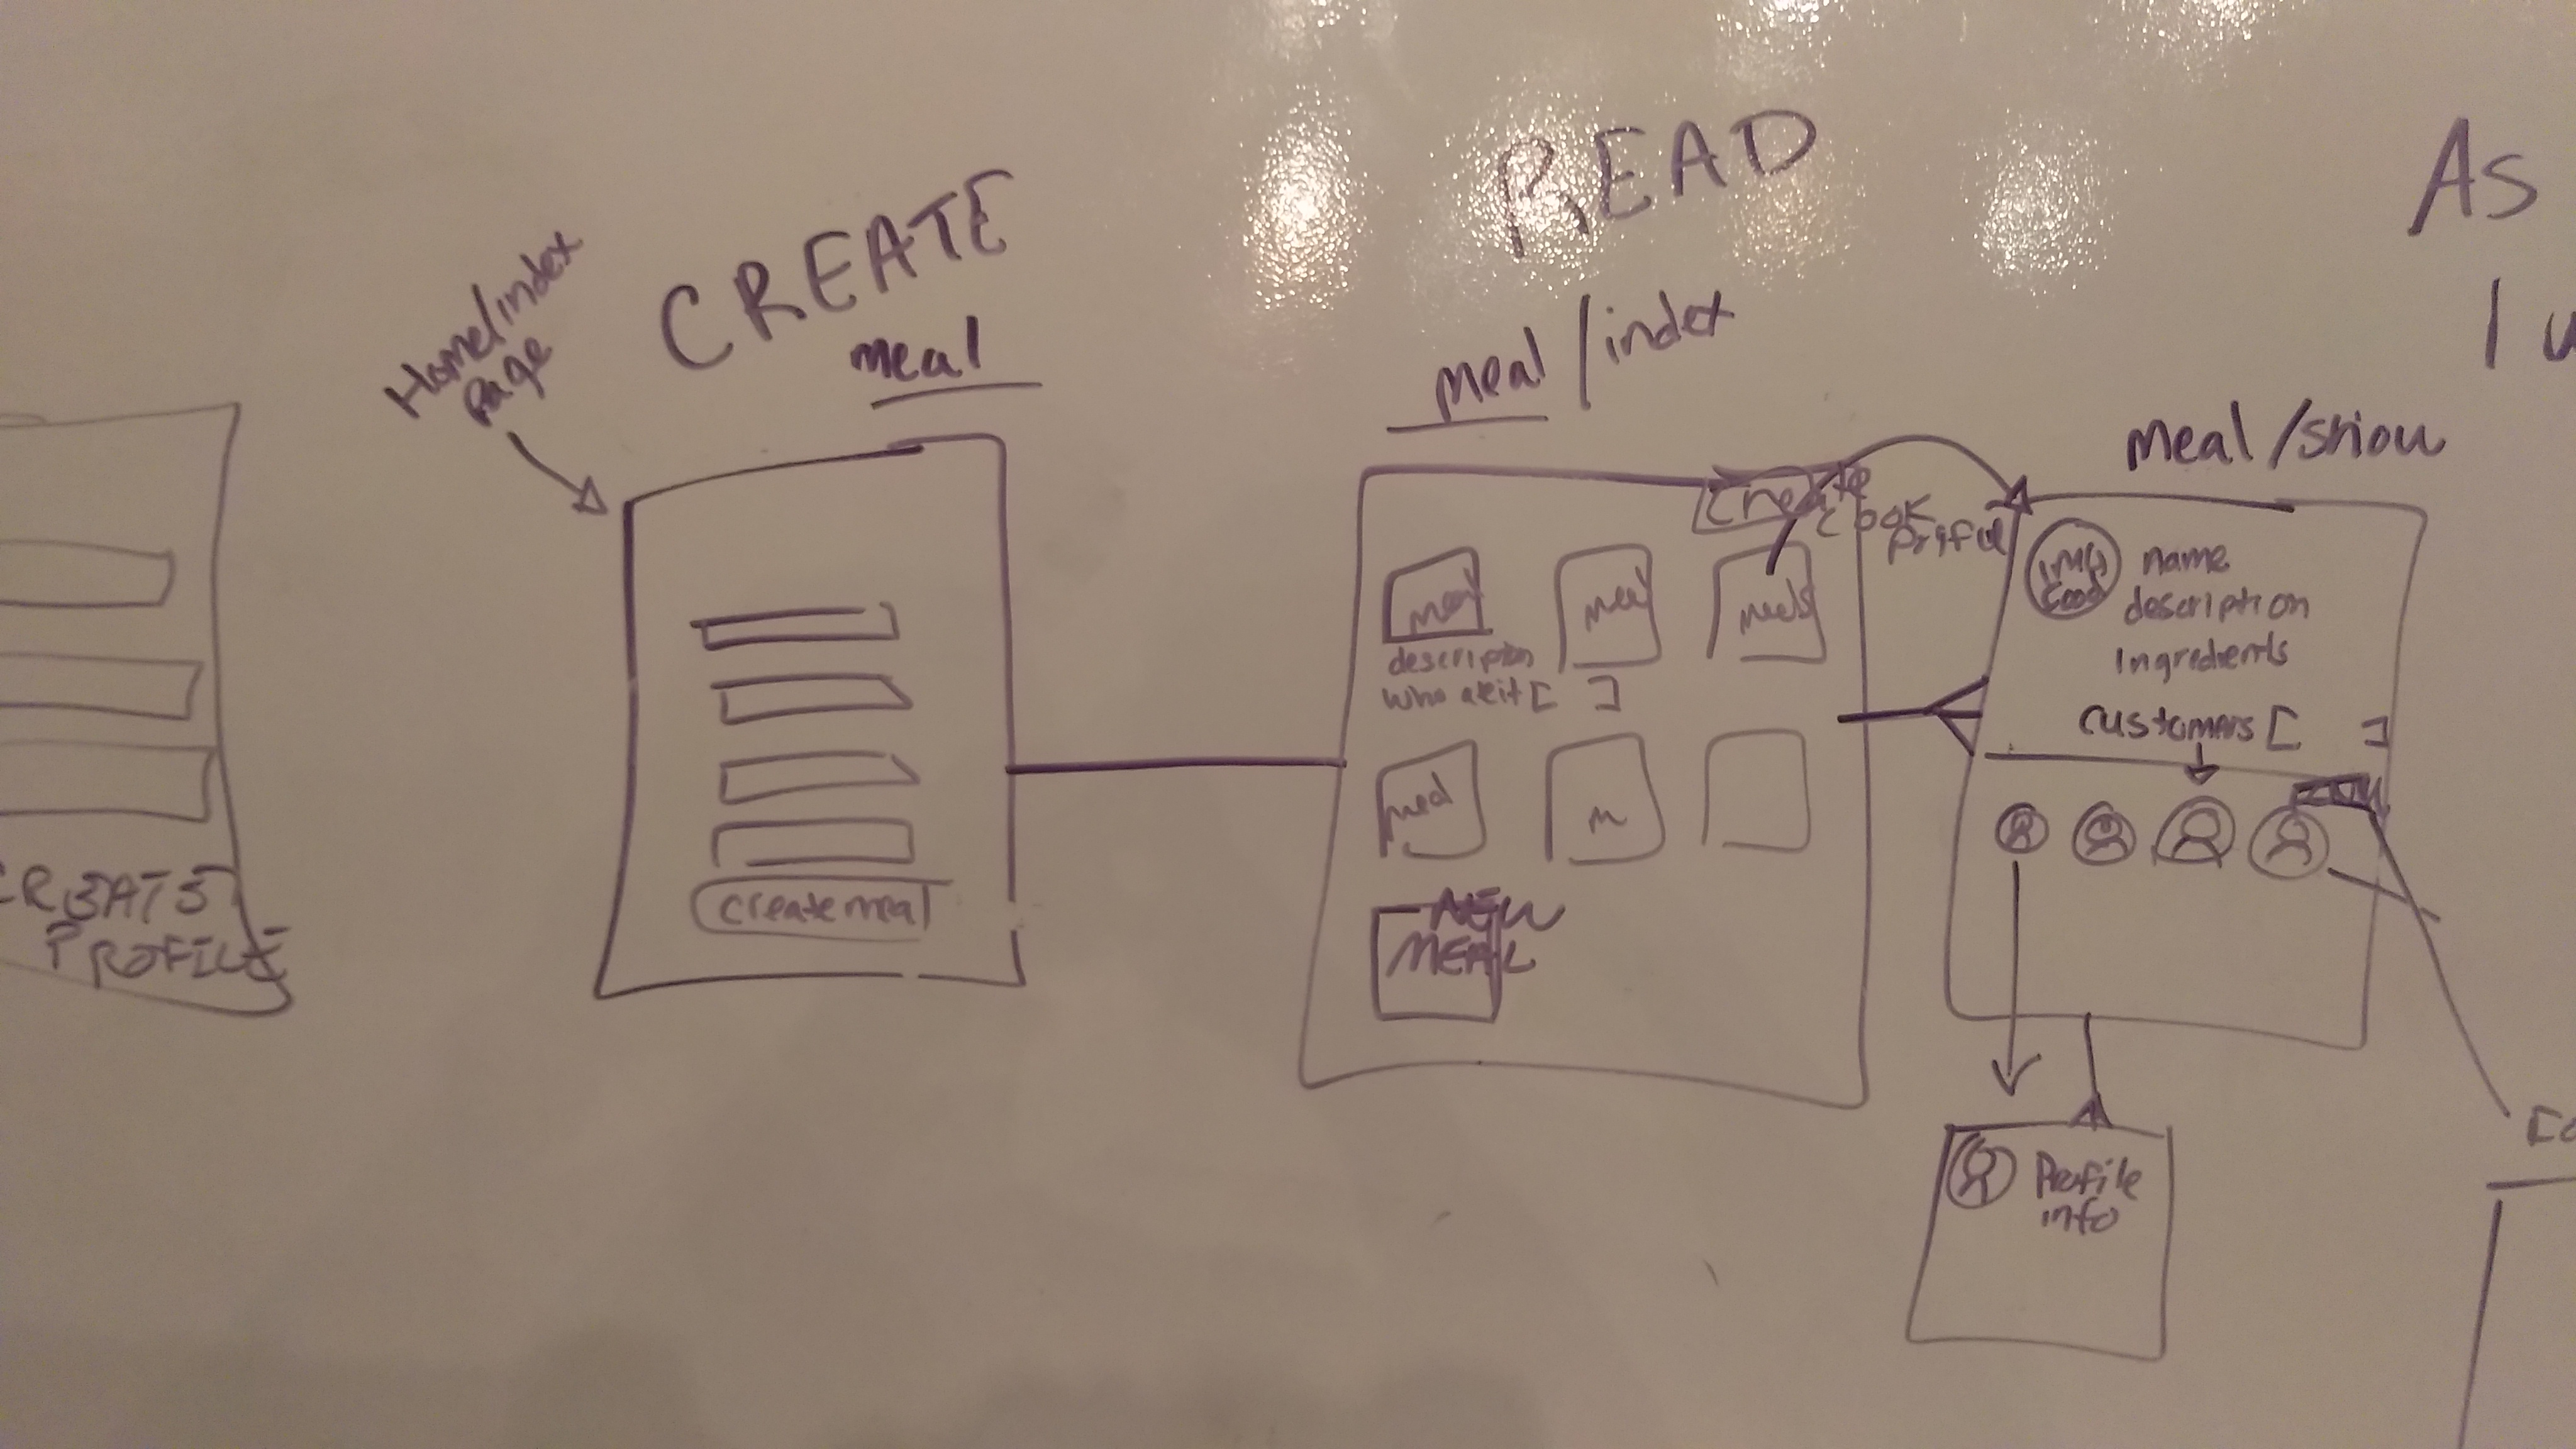 CREATE
PROFILE
Home/index
Page
CREATE
meal
createmeal
READ
meal/index
create
cook
meal
meal
meals
description
who ate it [ ]
meal
m
NEW
MEAL
meal/show
IMG
food
name
description
Ingredients
customers [ ]
Profile
info
AS
I